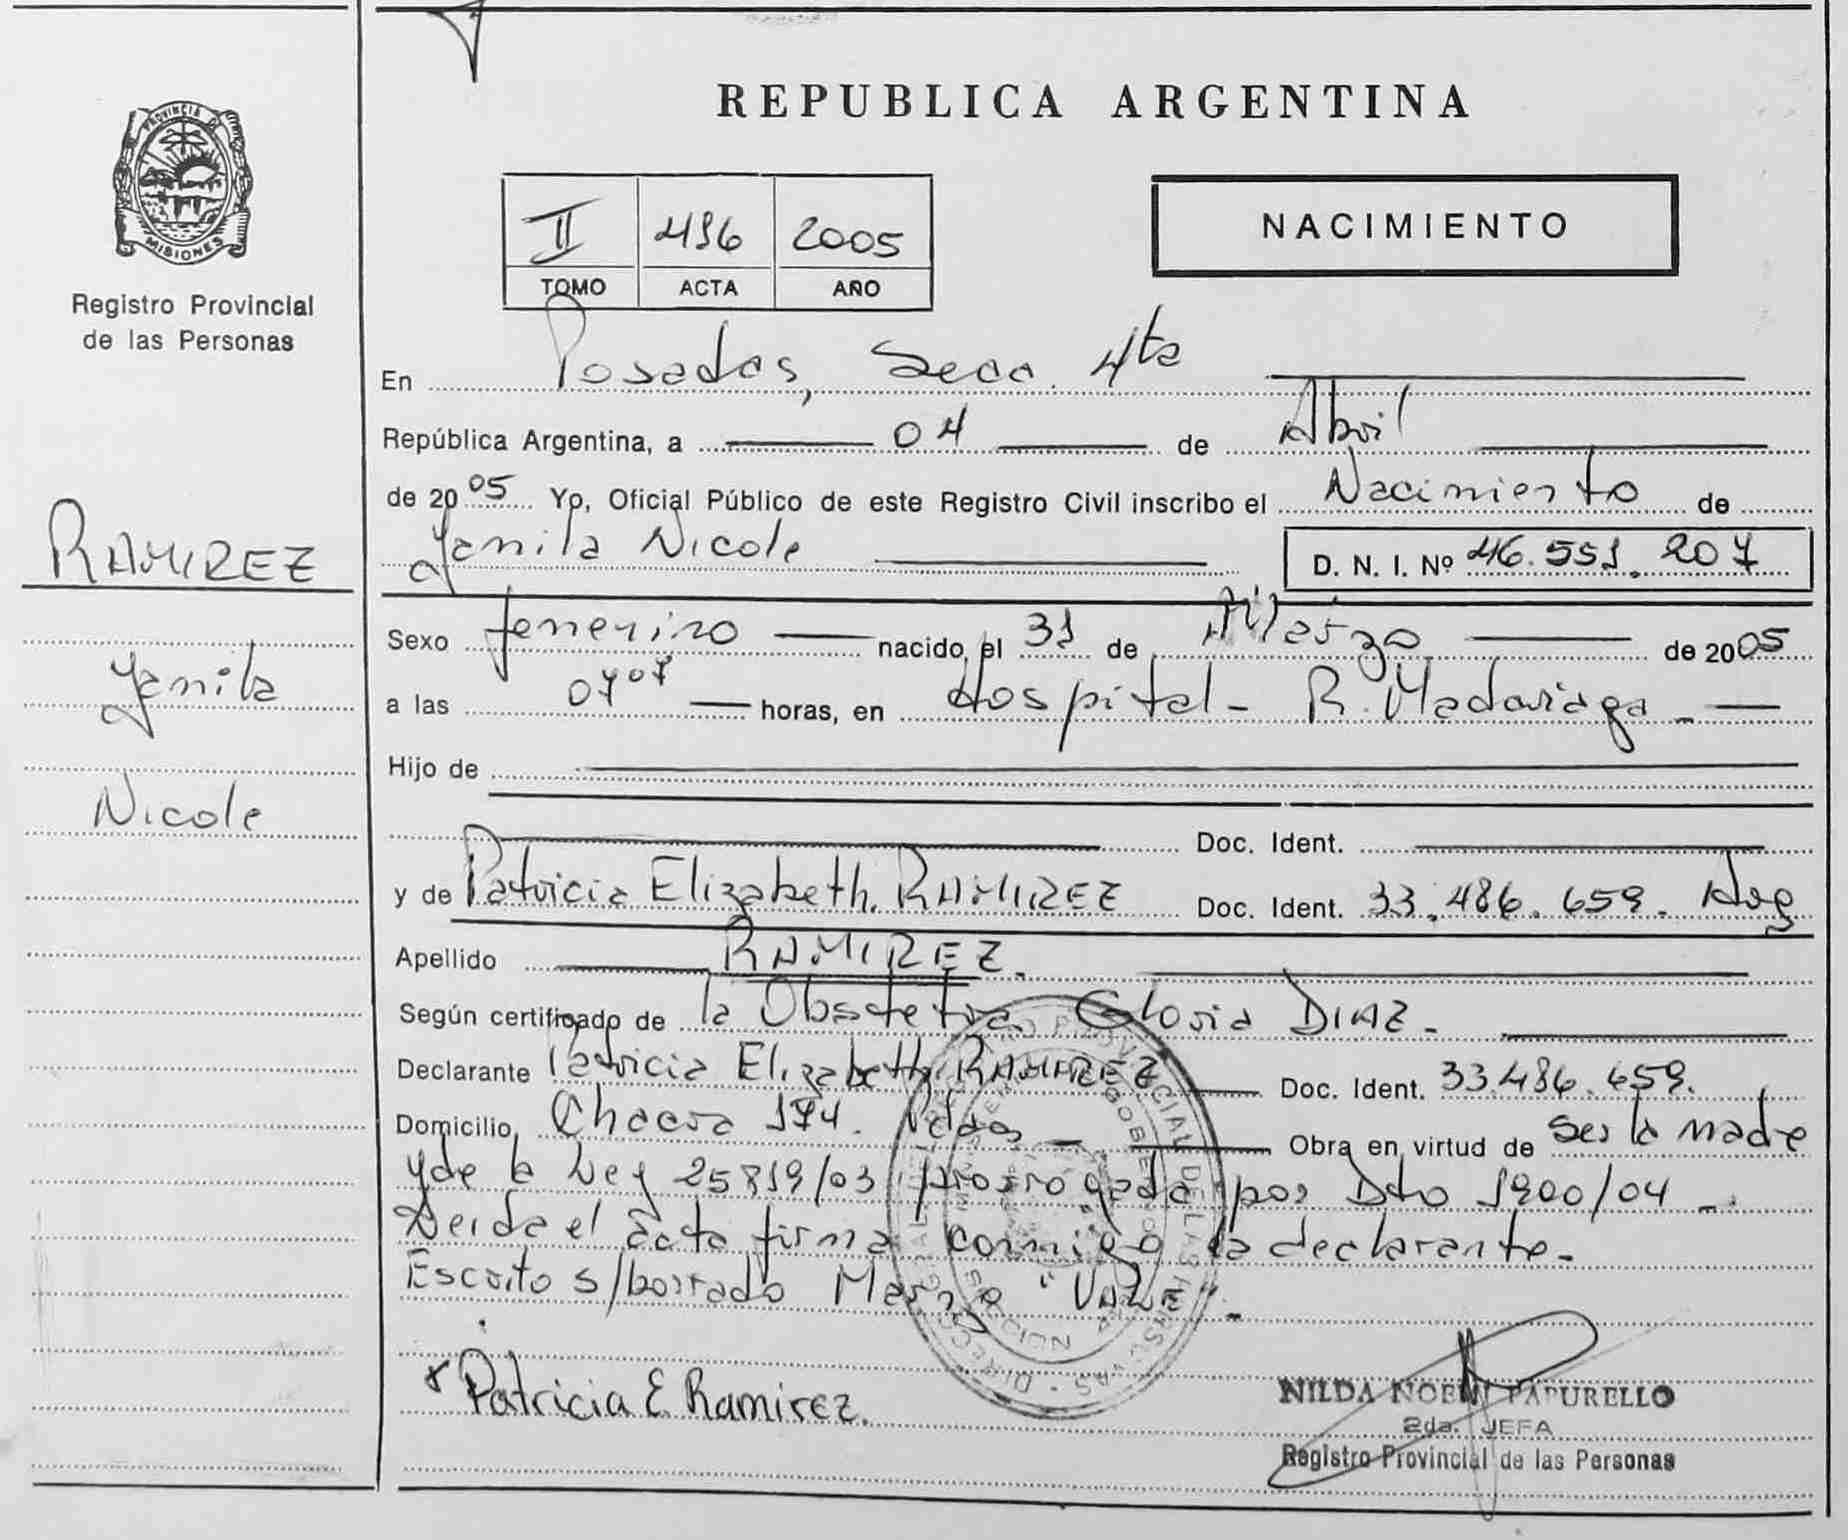 REPUBLICA ARGENTINA
PROVINCIA D
MISIONES
Registro Provincial
de las Personas
II 496 2005
TOMO ACTA AÑO
NACIMIENTO
RAMIREZ
Yamila
Nicole
En Posadas, Secc. 4ta
República Argentina, a 04 de Abril
de 2005 Yo, Oficial Público de este Registro Civil inscribo el Nacimiento de
Yamila Nicole D. N. I. Nº 46.551.207
Sexo femenino nacido el 31 de Marzo de 2005
a las 07 07 horas, en Hospital - R. Madariaga -
Hijo de
Doc. Ident.
y de Patricia Elizabeth RAMIREZ Doc. Ident. 33.486.659. Arg
Apellido RAMIREZ.
Según certificado de la Obstetra Gloria DIAZ -
Declarante Patricia Elizabeth RAMIREZ Doc. Ident. 33.486.659.
Domicilio Chacra 174. Pdas - Obra en virtud de ser la madre
y de la Ley 25819/03 prorrogada por Dto 1900/04 -.
Leida el acta firma conmigo la declarante.-
Escrito s/borrado Marzo "VALE".-
Patricia E. Ramirez.
NILDA NOEMI PAPURELLO
2da. JEFA
Registro Provincial de las Personas